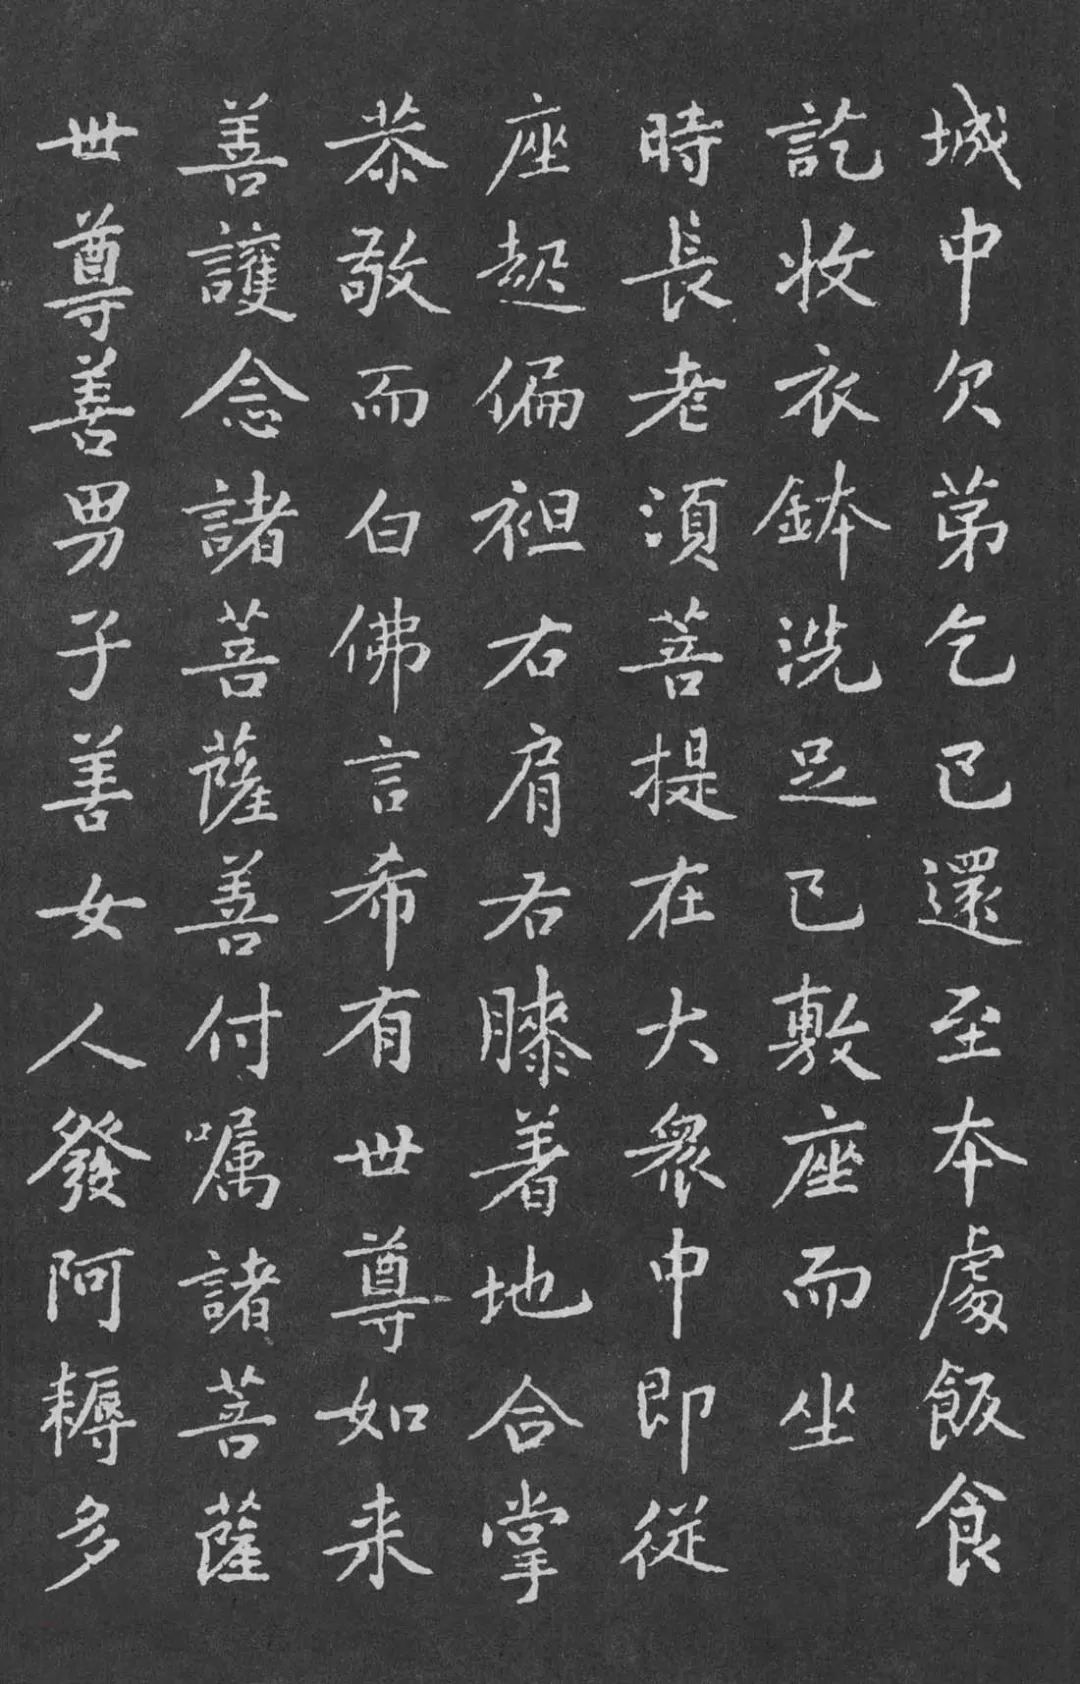 城中次第乞已還至本處飯食
訖收衣鉢洗足已敷座而坐
時長老須菩提在大衆中即從
座起偏袒右肩右膝着地合掌
恭敬而白佛言希有世尊如来
善護念諸菩薩善付嘱諸菩薩
世尊善男子善女人發阿耨多